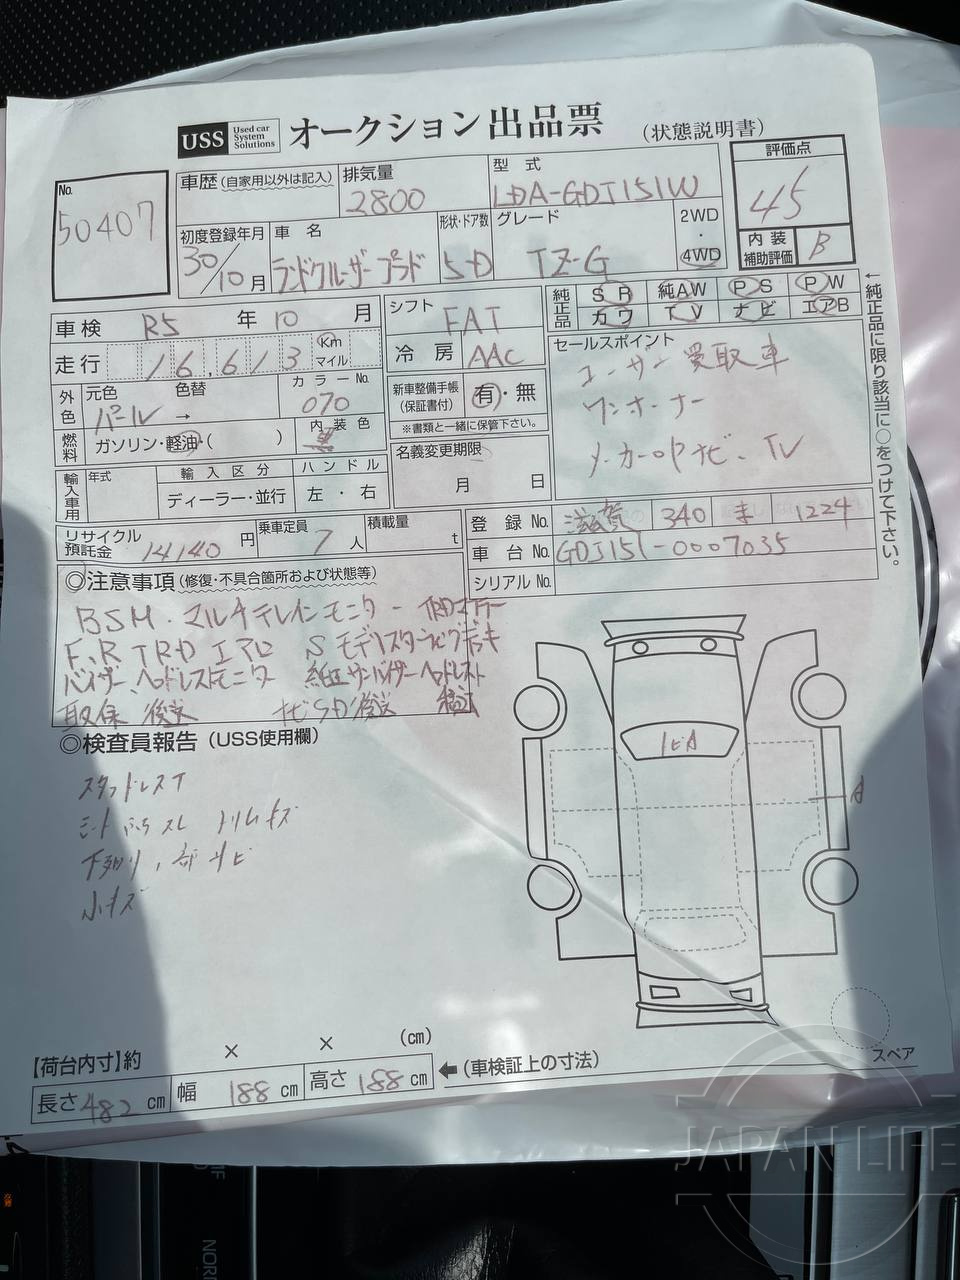 USS Used car System Solutions オークション出品票 (状態説明書)
No. 50407
車歴 (自家用以外は記入)
排気量 2800
型式 LDA-GDJ151W
評価点 45
内装補助評価 B
初度登録年月 30/10月
車名 ランドクルーザープラド
形状・ドア数 5-D
グレード TZ-G
2WD・4WD
車検 R5年10月
走行 16,613 Km マイル
外色 元色 パール → 色替
カラーNo. 070
燃料 ガソリン・軽油・( )
内装色 黒
輸入車用 年式
輸入区分 ディーラー・並行
ハンドル 左・右
シフト FAT
冷房 AAC
新車整備手帳 (保証書付) 有・無
※書類と一緒に保管下さい。
名義変更期限 月 日
純正品 SR 純AW PS PW
カワ TV ナビ エアB
←純正品に限り該当に○をつけて下さい。
セールスポイント
ユーザー買取車
ワンオーナー
メーカーOPナビ・TV
リサイクル預託金 14140円
乗車定員 7人
積載量 t
登録No. 滋賀 340 ま 1224
車台No. GDJ151-0007035
シリアルNo.
◎注意事項 (修復・不具合箇所および状態等)
BSM・マルチテレインモニター TRD
F、R TRD エアロ Sモデリスタ
バイザー、ヘッドレストモニター 純正サンバイザーヘッドレスト
取保 後送 ナビSD後送 積込
◎検査員報告 (USS使用欄)
スタッドレスT
シート スレ トリムキズ
下廻り一部サビ
小キズ
1ビA
A
スペア
【荷台内寸】約 × × (cm)
長さ 482 cm 幅 188 cm 高さ 188 cm ←(車検証上の寸法)
JAPAN LIFE